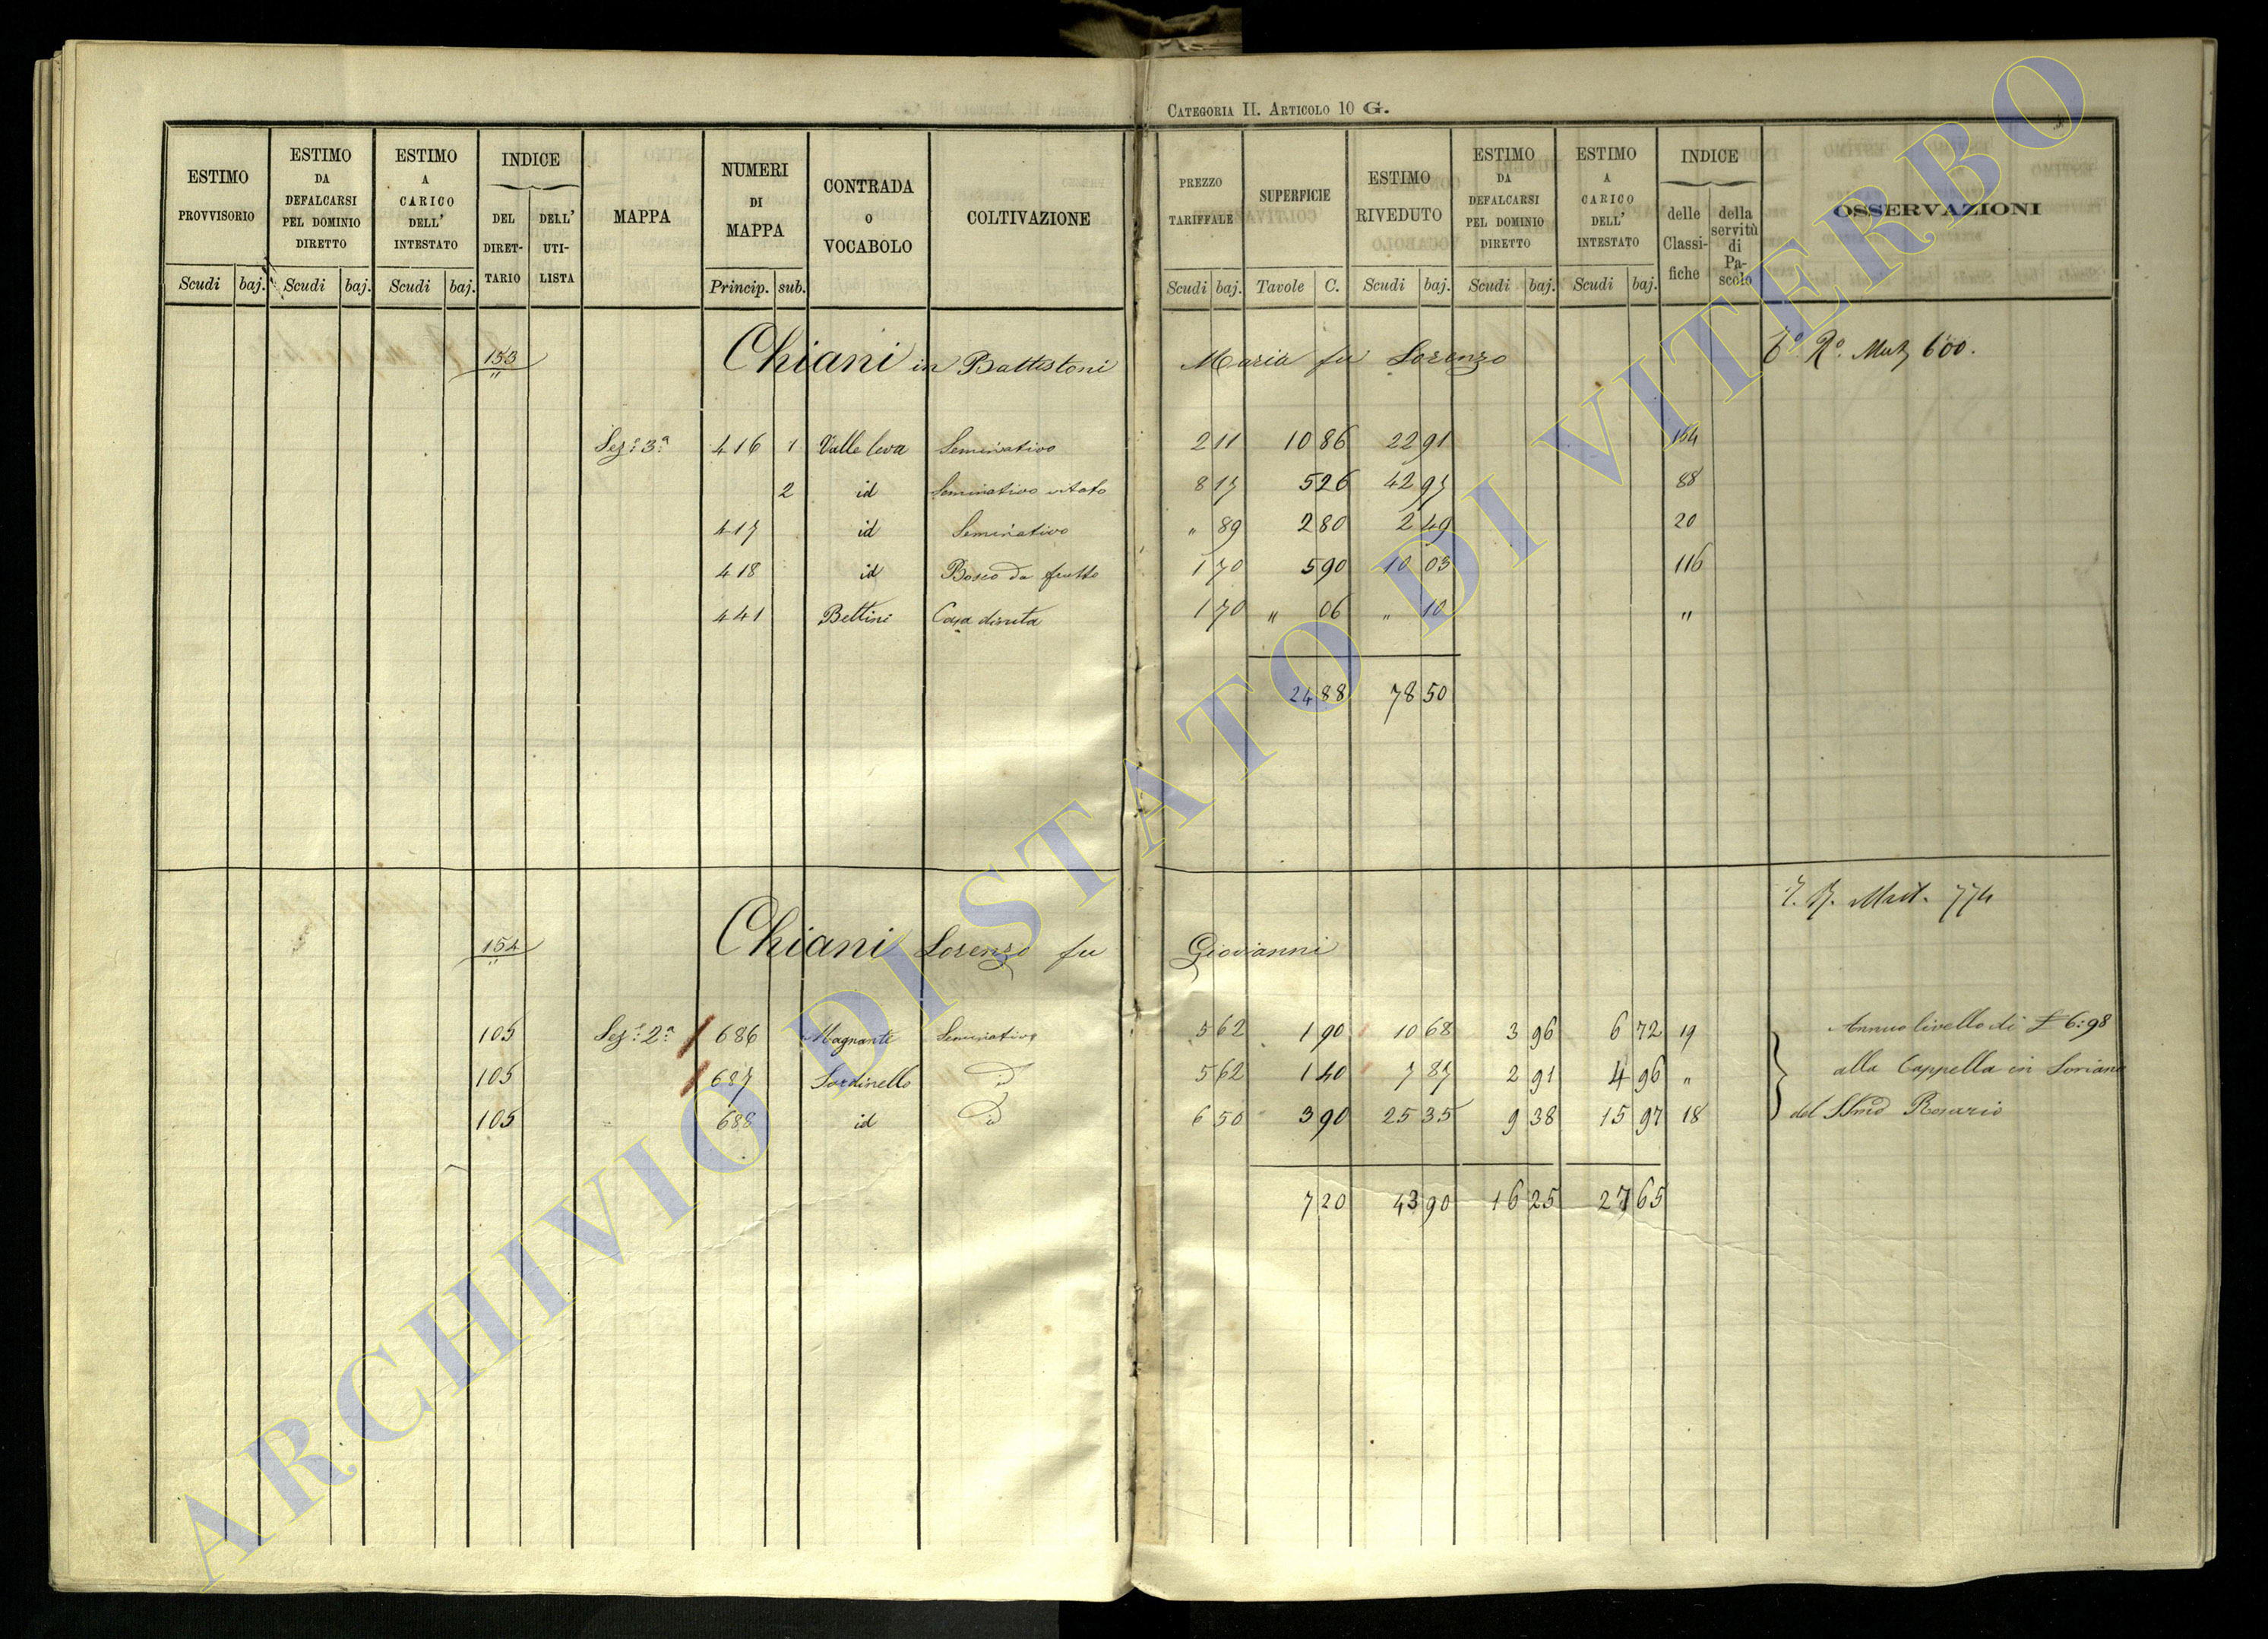 CATEGORIA II. ARTICOLO 10 G.
ESTIMO PROVVISORIO Scudi baj.
ESTIMO DA DEFALCARSI PEL DOMINIO DIRETTO Scudi baj.
ESTIMO A CARICO DELL' INTESTATO Scudi baj.
INDICE DEL DIRETTARIO DELL' UTILISTA
MAPPA
NUMERI DI MAPPA Princip. sub.
CONTRADA O VOCABOLO
COLTIVAZIONE
PREZZO TARIFFALE Scudi baj.
SUPERFICIE Tavole C.
ESTIMO RIVEDUTO Scudi baj.
ESTIMO DA DEFALCARSI PEL DOMINIO DIRETTO Scudi baj.
ESTIMO A CARICO DELL' INTESTATO Scudi baj.
INDICE delle Classifiche della servitù di Pascolo
OSSERVAZIONI
153 Chiani in Battistoni Maria fu Lorenzo Mut 600.
Sez: 3ª 416 1 Valle leva Seminativo 2 11 10 86 22 91 154
2 id Seminativo vitato 8 17 5 26 42 97 88
417 id Seminativo " 89 2 80 2 49 20
418 id Bosco da frutto 1 70 5 90 10 03 116
441 Bettini Casa diruta 1 70 " 06 " 10 "
24 88 78 50
774
154 Chiani Lorenzo fu Giovanni
105 Sez: 2ª 686 Magnante Seminativo 5 62 1 90 10 68 3 96 6 72 19 Annuo livello di £ 6:98
105 687 Sordinello D 5 62 1 40 7 87 2 91 4 96 " alla Cappella in Soriano
105 688 id D 6 50 3 90 25 35 9 38 15 97 18 del SSmo Rosario
7 20 43 90 16 25 27 65
ARCHIVIO DI STATO DI VITERBO